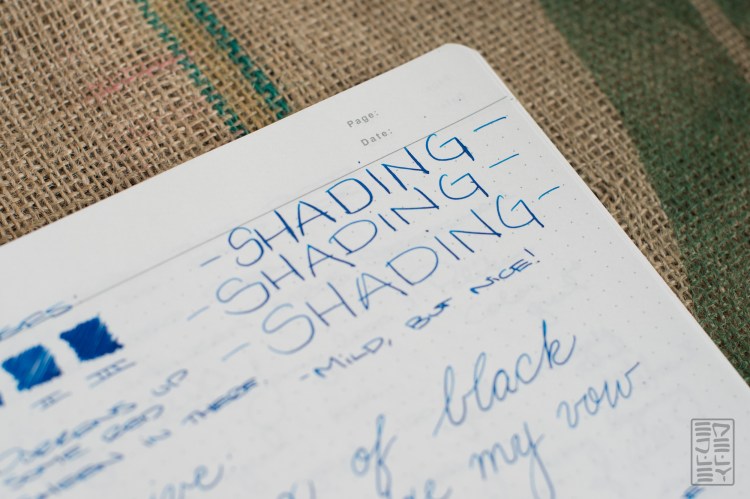 Page:
Date:
- SHADING -
- SHADING -
- SHADING -
- MILD, BUT NICE!
II III
DARKENS UP
SOME RED
SHEEN IN THERE.
of black
my vow.